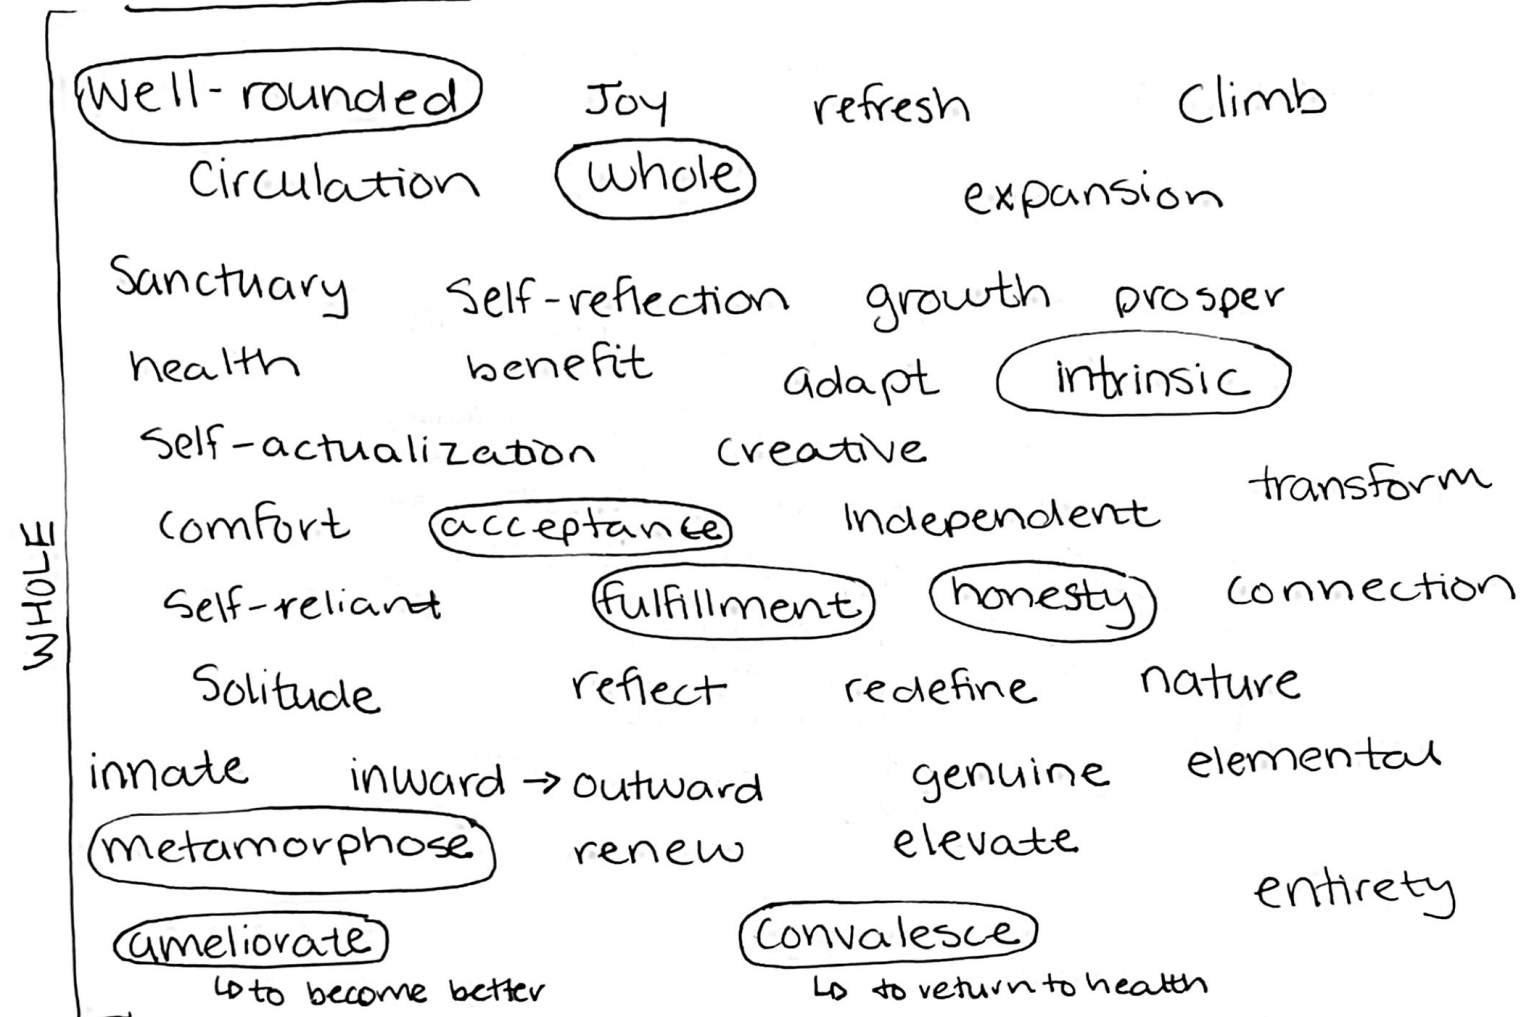 well-rounded Joy refresh Climb
Circulation whole expansion
Sanctuary Self-reflection growth prosper
health benefit adapt intrinsic
Self-actualization creative
transform
comfort acceptance Independent
Self-reliant fulfillment honesty connection
Solitude reflect redefine nature
innate inward → outward genuine elemental
metamorphose renew elevate
entirety
ameliorate convalesce
↳ to become better ↳ to return to health
WHOLE